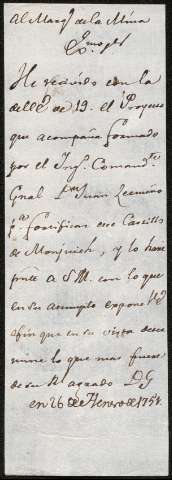 Al Marq.s de la Mina
Ex.mo S.or
He recivido con la
de V.E. de 19. el Proyecto
que acompaña formado
por el Ing.o Comand.te
Gral D.n Juan Zermeño
p.a fortificar ese Castillo
de Monjuich, y lo hare
pres.te a S.M. con lo que
en su assumpto expone V.E.
afin que en su vista deter
mine lo que mas fuere
de su R.l agrado D.G.
en 26 de Henero de 1751.